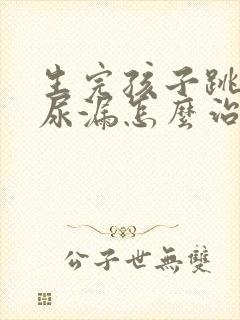 生完孩子跳
尿漏怎麼治
公子世無雙